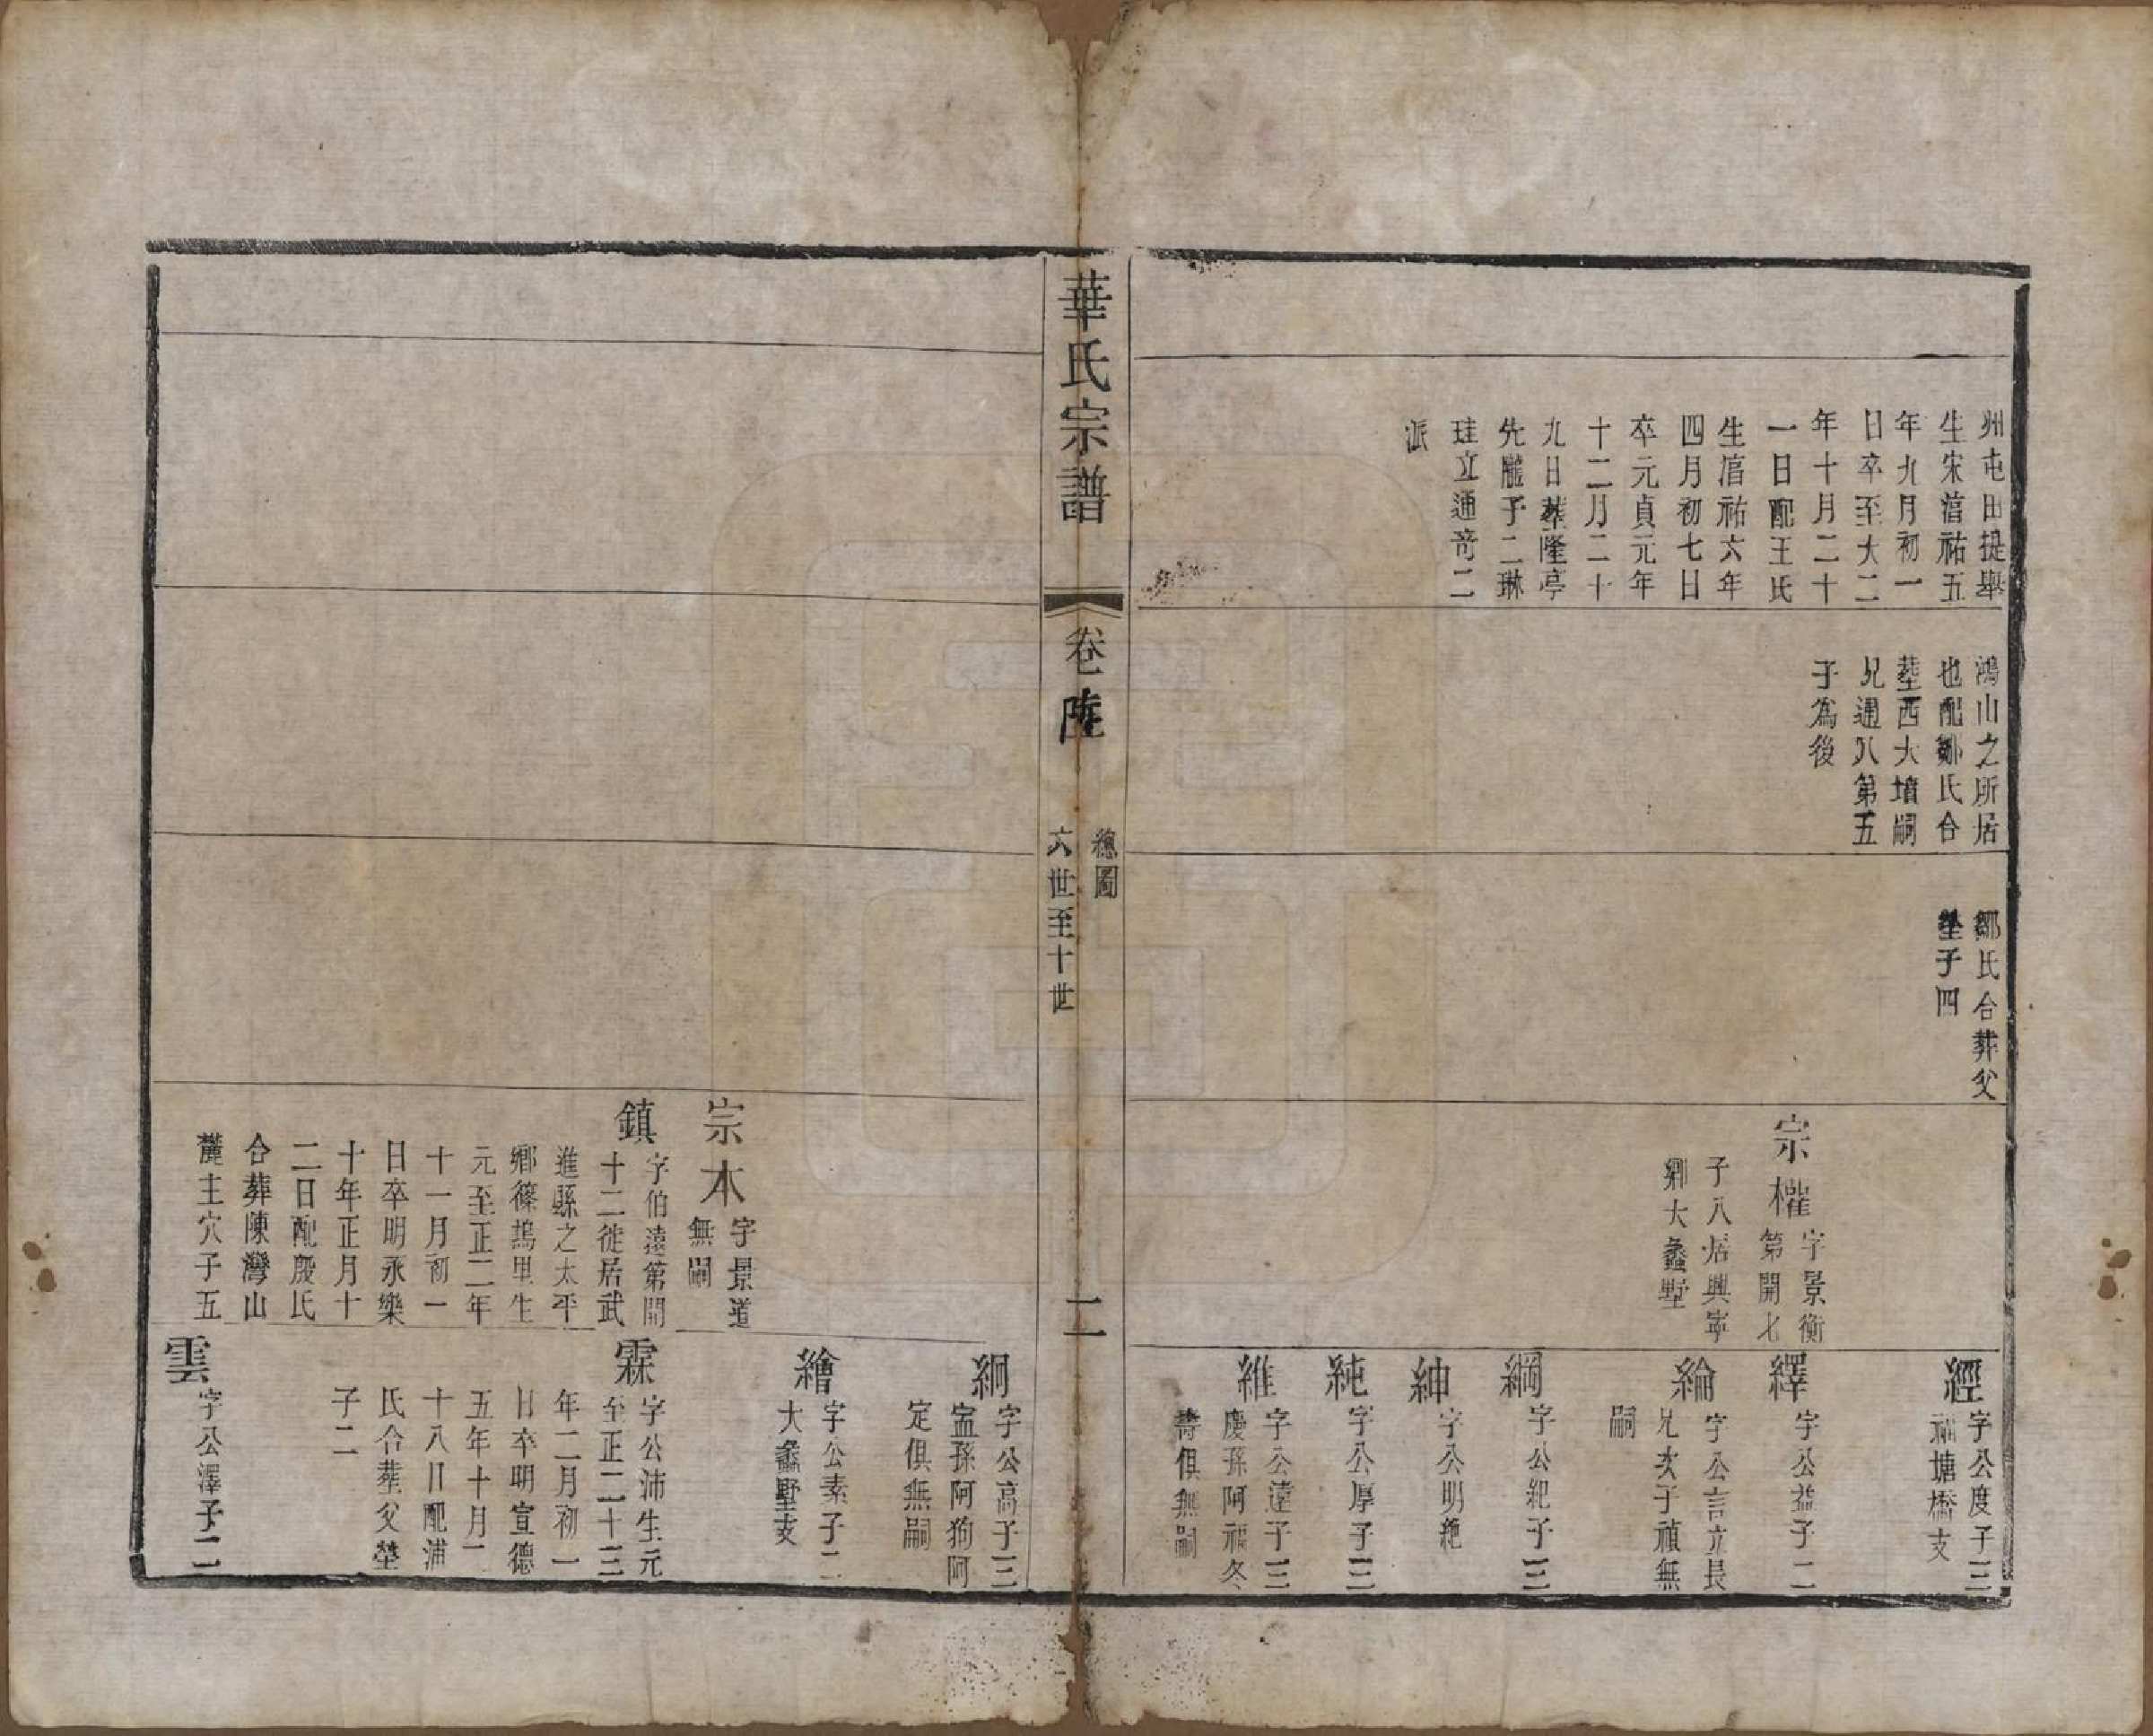 州屯田提舉
生宋湻祐五
年九月初一
日卒至大二
年十月二十
一日配王氏
生湻祐六年
四月初七日
卒元貞元年
十二月二十
九日葬隆亭
先隴子二琳
珪立通奇二
派
鴻山之所居
也配鄒氏合
葬西大墳嗣
兄通八第五
子為後
鄒氏合葬父
塋子四
宗權
字景衡
第開七
子八居興寧
鄉大蠡墅
經
字公度子三
塘橋支
繹
字公益子二
綸
字公言立長
兄次子禎無
嗣
綱
字公紀子三
紳
字公明絶
純
字公厚子三
維
字公遠子三
慶孫阿福冬
壽俱無嗣
華氏宗譜
卷陸
總圖
六世至十世
二
絅
字公高子三
孟孫阿狗阿
定俱無嗣
繪
字公素子二
大蠡墅支
宗本
字景道
無嗣
鎮
字伯遠第開
十二徙居武
進縣之太平
鄉篠塢里生
元至正二年
十一月初一
日卒明永樂
十年正月十
二日配殷氏
合葬陳灣山
麓主穴子五
霖
字公沛生元
至正二十三
年二月初一
日卒明宣德
五年十月
十八日配浦
氏合葬父塋
子二
雲
字公澤子二